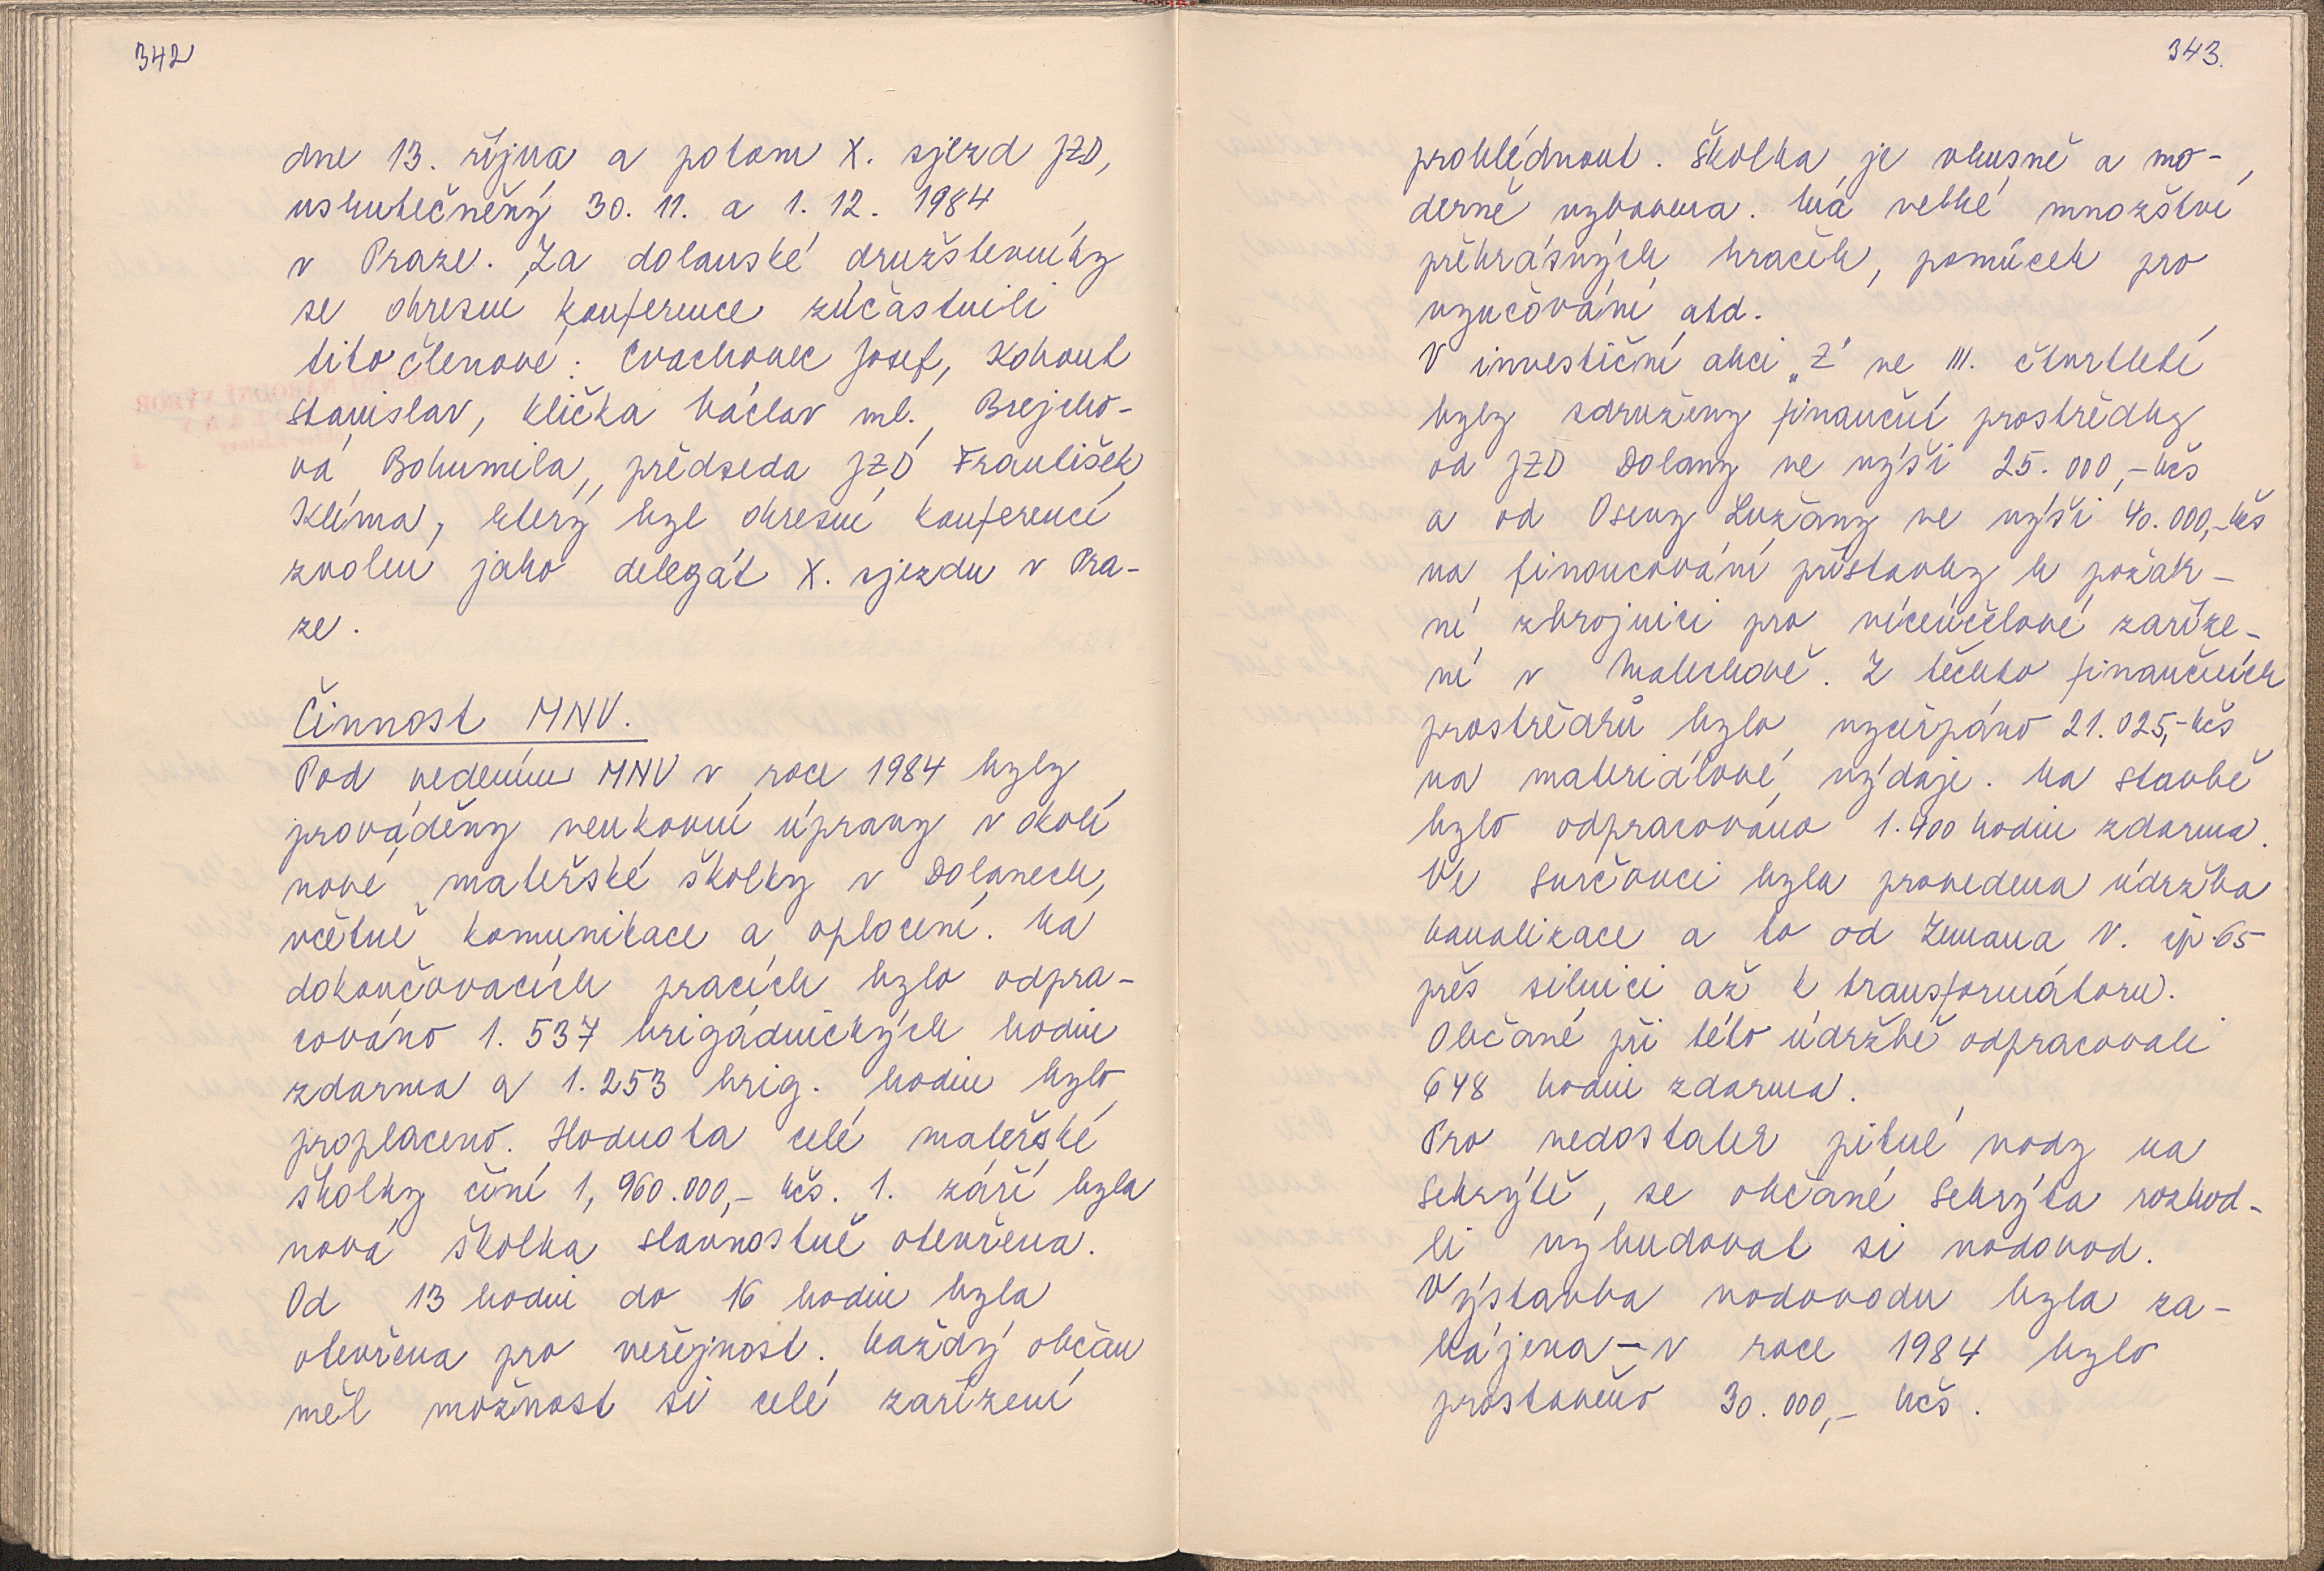 342
dne 13. října a potom X. sjezd JZD,
uskutečněný 30. 11. a 1. 12. 1984
v Praze. Za dolanské družstevníky
se okresní konference zúčastnili
tito členové: Cvachovec Josef, Kohout
Stanislav, Klička Václav ml., Brejcho-
vá Bohumila, předseda JZD František
Klíma, který byl okresní konferencí
zvolen jako delegát X. sjezdu v Pra-
ze.
Činnost MNV.
Pod vedením MNV v roce 1984 byly
prováděny venkovní úpravy v okolí
nové mateřské školky v Dolanech,
včetně komunikace a oplocení. Na
dokončovacích pracích bylo odpra-
cováno 1. 537 brigádnických hodin
zdarma a 1. 253 brig. hodin bylo
proplaceno. Hodnota celé mateřské
školky činí 1, 960.000,- Kčs. 1. září byla
nová školka slavnostně otevřena.
Od 13 hodin do 16 hodin byla
otevřena pro veřejnost. Každý občan
měl možnost si celé zařízení
343.
prohlédnout. Školka je vkusně a mo-
derně vybavena. Má velké množství
překrásných hraček, pomůcek pro
vyučování atd.
V investiční akci „Z" ve III. čtvrtletí
byly sdruženy finanční prostředky
od JZD Dolany ve výši 25. 000,- Kčs
a od Osevy Lužany ve výši 40. 000,- Kčs
na financování přístavby k požár-
ní zbrojnici pro víceúčelové zaříze-
ní v Malechově. Z těchto finančních
prostředků bylo vyčerpáno 21. 025,- Kčs
na materiálové výdaje. Na stavbě
bylo odpracováno 1. 400 hodin zdarma.
Ve Svrčovci byla provedena údržba
kanalizace a to od Zemana V. čp. 65
přes silnici až k transformátoru.
Občané při této údržbě odpracovali
648 hodin zdarma.
Pro nedostatek pitné vody na
Sekrýtě, se občané Sekrýta rozhod-
li vybudovat si vodovod.
Výstavba vodovodu byla za-
hájena - v roce 1984 bylo
prostavěno 30. 000,- Kčs.